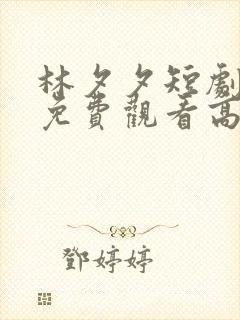 林夕夕短劇
免費觀看高
鄧婷婷